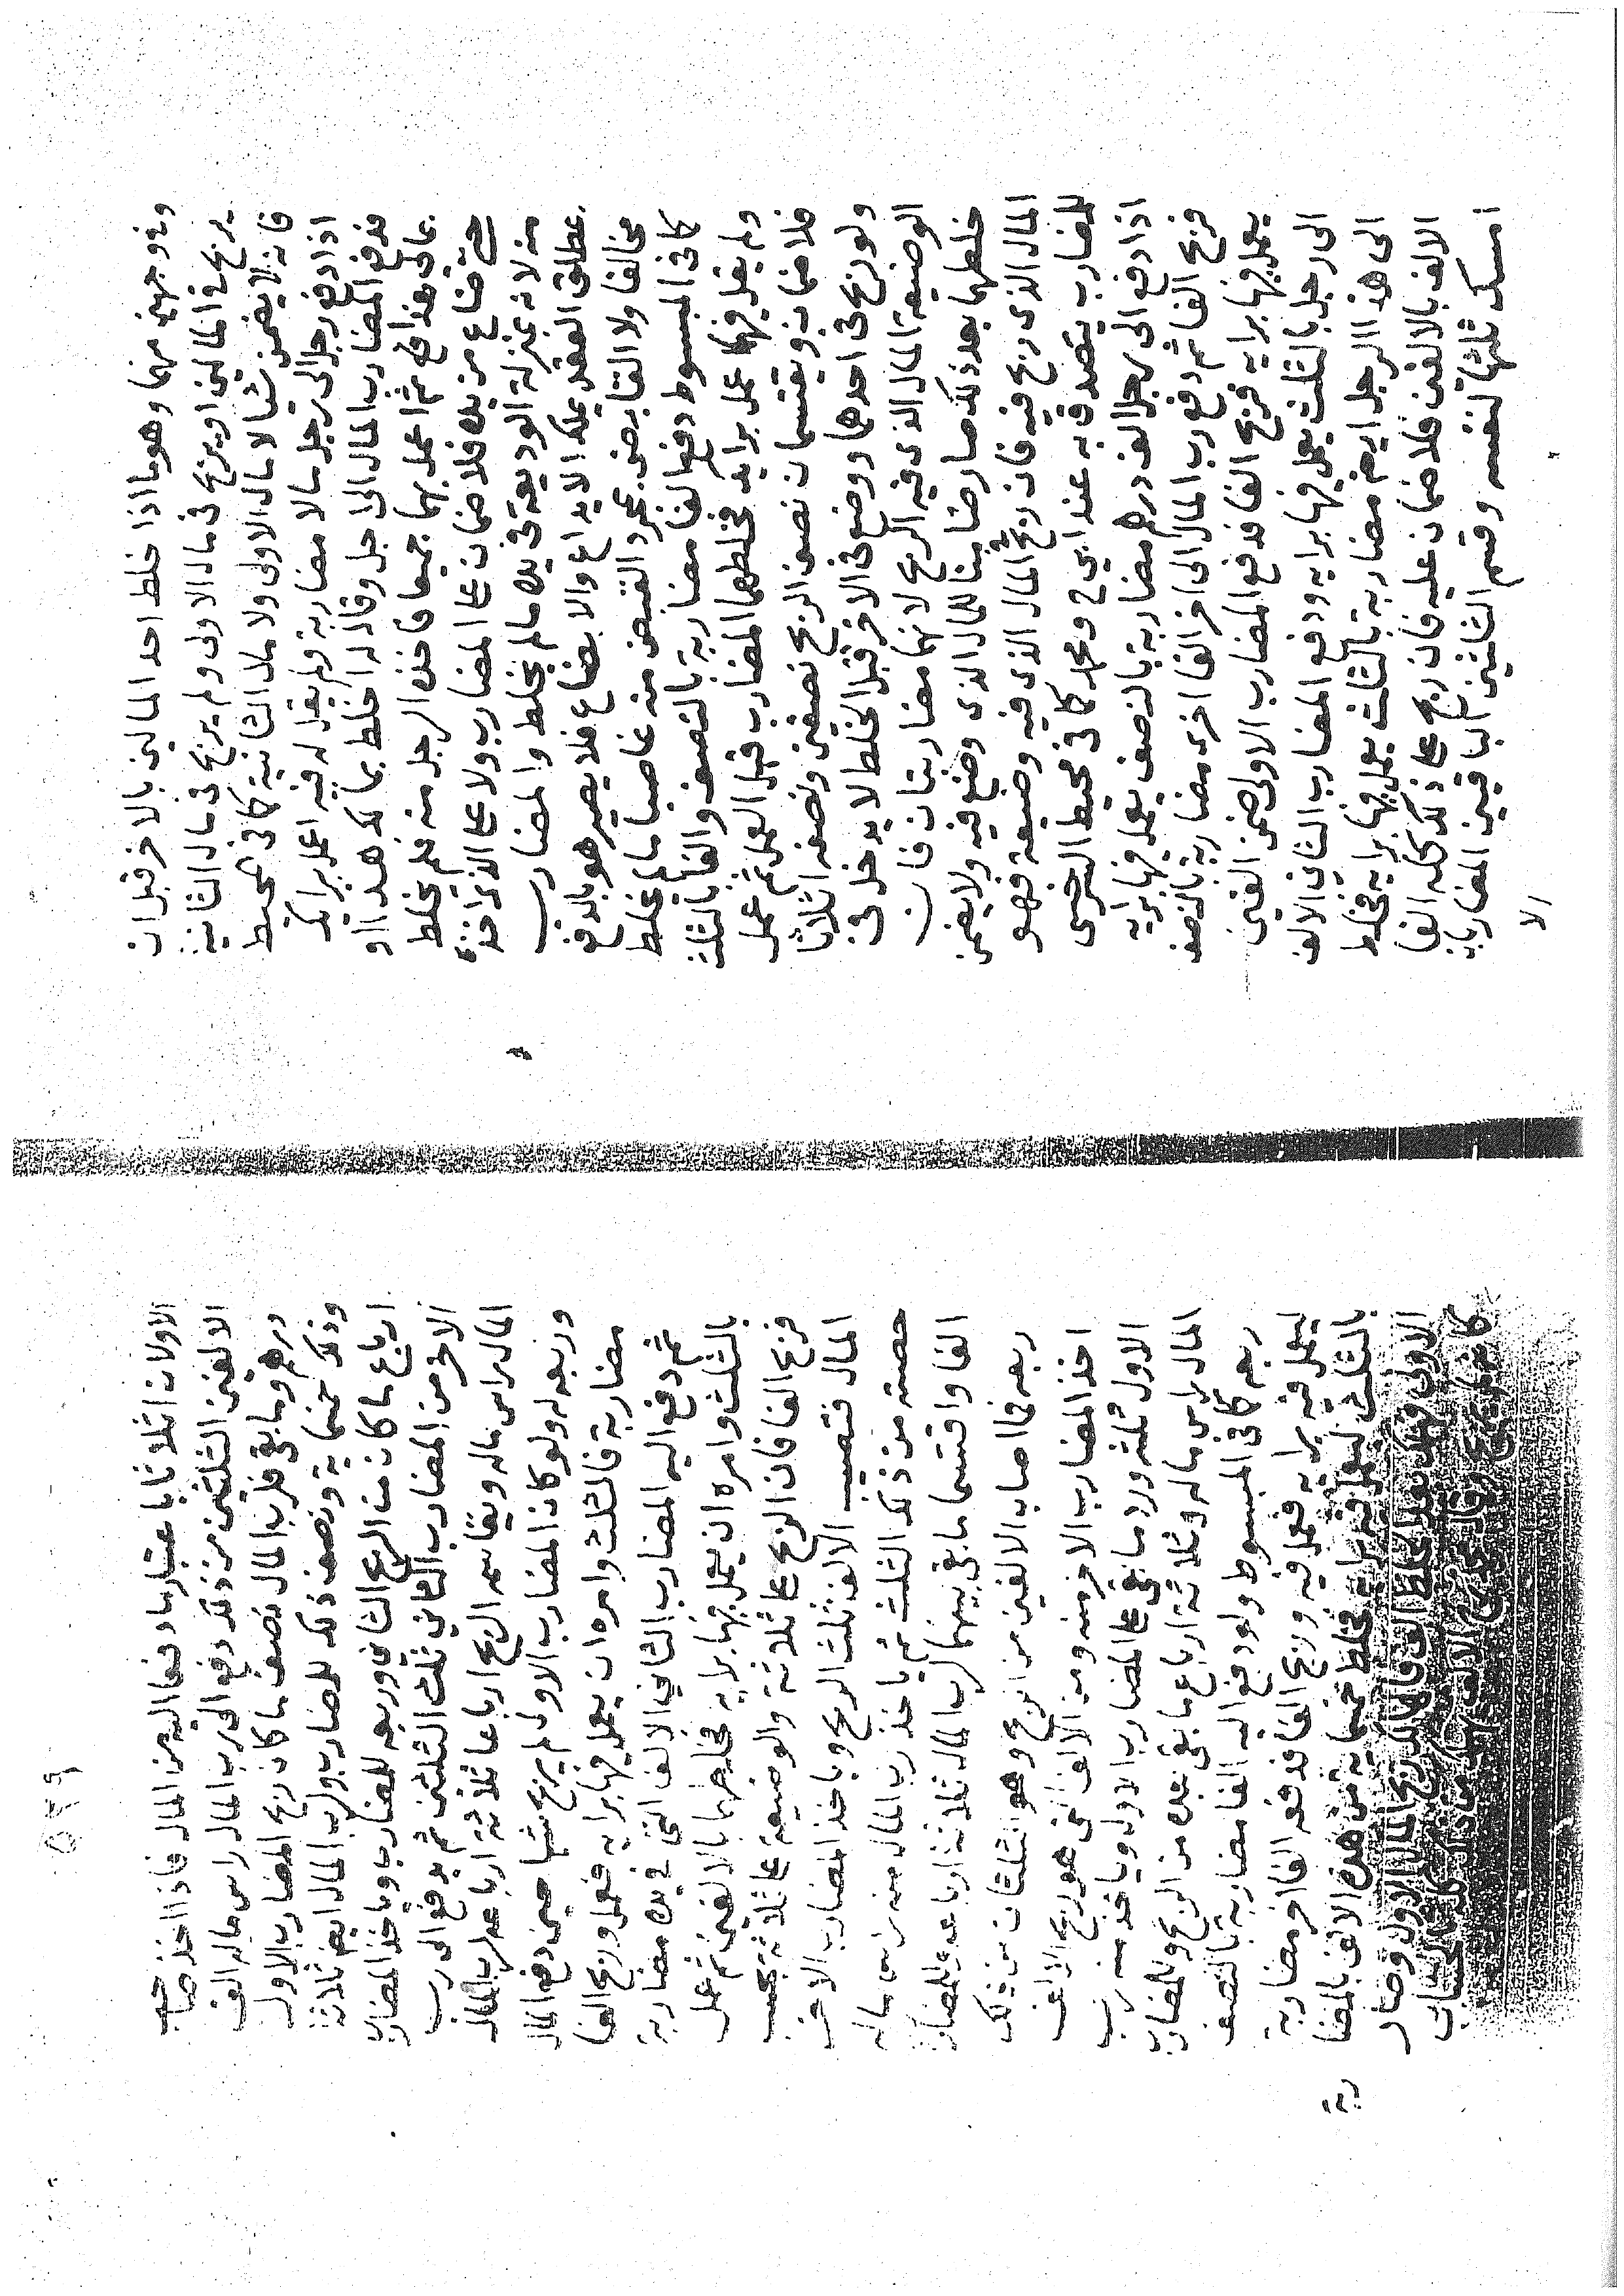 وفى وجهين منها وهو ما اذا خلط احد المالين بالاخر قبل ان
يربح فى المالين او يربح فى مال الاولى ولم يربح فى مال الثانية
فانه لا يضمن شيأ لا مال الاولى ولا مال الثانية كا فى المحيط
اذا دفع رجل الى رجل مالا مضاربة ولم يقل له فيه اعمل برايك
فدفع المضارب المال الى رجل وقال له اخلط بمالك هذا او
بمالى هذا ثم اعمل بهما جميعا فاخذه الرجل منه فلم يخلط
حتى ضاع من يده فلا ضمان على المضارب ولا على الذى اخذه
منه لانه بمنزلة الوديعة فى يده مالم يخلط والمضارب
بمطلق العقد يملك الايداع والابضاع فلا يصير هو بالدفع
مخالفا ولا القابض بمجرد القبض منه غاصبا مالم يخلط
كا فى المبسوط دفع الفا مضاربة بالنصف والفا بالثلث
ولم يقل فيهما اعمل برايك فخلطهما المضارب قبل العمل ثم عمل
فلا ضمان ويقتسمان نصف الربح نصفين ونصفه اثلاثا
ولو ربح فى احدهما ووضع فى الاخر قبل الخلط لا يدخل فى
الوضيعة المال الذى فيه الربح لانهما مضاربتان فان
خلطهما بعد ذلك صار ضامنا للمال الذى وضع فيه ولا يضمن
المال الذى ربح فيه فان ربح المال الذى فيه وضيعة فهو
للمضارب يتصدق به عند ابى ح ومحمد كا فى محيط السرخسى
اذا دفع الى رجل الف درهم مضاربة بالنصف يعمل فيها برايه
فربح الفا ثم دفع رب المال الى اخر الفا اخرى مضاربة بالنصف
يعمل فيها برايه فربح الفا فدفع المضارب الاولى الفين
الى رجل بالثلث يعمل فيها برايه ودفع المضارب الثانى الالف
الى هذا الرجل ايضا مضاربة بالثلث يعمل فيها برايه فخلط
الالف بالالفين فلا ضمان عليه فان ربح على ذلك كله الفا
امسك ثلثها لنفسه وقسم الثلثين الباقيين المضاربان
لا
٥٣٩
الاولان اثلاثا باعتبار ما دفعا اليه من المال فاذا اخذ صاحب
الالفين الثلثين من ذلك دفع الى رب المال راس ماله الف
درهم وما بقى فلرب المال نصف ما كان ربح المضارب الاول
وذلك خمسماية ونصف ذلك للمضارب ولرب المال ايضا ثلاثة
ارباع ما كان من الربح الثانى وربعه للمضارب وياخذ المضارب
الاخر من المضارب الثانى ثلث الثلثين ثم يدفع الى رب
المال راس ماله ويقاسمه الربح ارباعا ثلاثة ارباعه لرب المال
وربعه له ولو كان المضارب الاول لم يربح شيأ حين دفع المال
مضاربة فالثلث وامره ان يعمل فيها برايه فعمل وربح الفا
ثم دفع اليه المضارب الثانى الالف التى فى يده مضاربة
بالثلث وامره ان يعمل فيها برايه فخلطها بالالفين ثم عمل
فربح الفا فان الربح على ثلاثة والوضيعة على ثلاثة بحسب
المال فتصيب الالف ثلث الربح وياخذ المضارب الاخر
حصته من ذلك الثلث ثم ياخذ رب المال منه راس ماله
الفا واقتسما ما بقى بينهما لرب المال ثلاثة ارباعه وللمضارب
ربعه فما اصاب الالفين من الربح وهو الثلثان من ذلك
اخذ المضارب الاخر منه ومن الالف التى هو ربح الالف
الاول ثلثه ورد ما بقى على المضارب الاول وياخذ منه رب
المال راس ماله وثلاثة ارباع ما بقى بعده من الربح وللمضارب
ربعه كا فى المبسوط ولو دفع اليه الفا مضاربة بالنصف
ليعمل فيه برايه فعمل فيه وربح الفا فدفعه الفا اخر مضاربة
بالثلث ليعمل فيه برايه فخلط خمسماية من هذه الالف بالمضا
ربة
الاولى